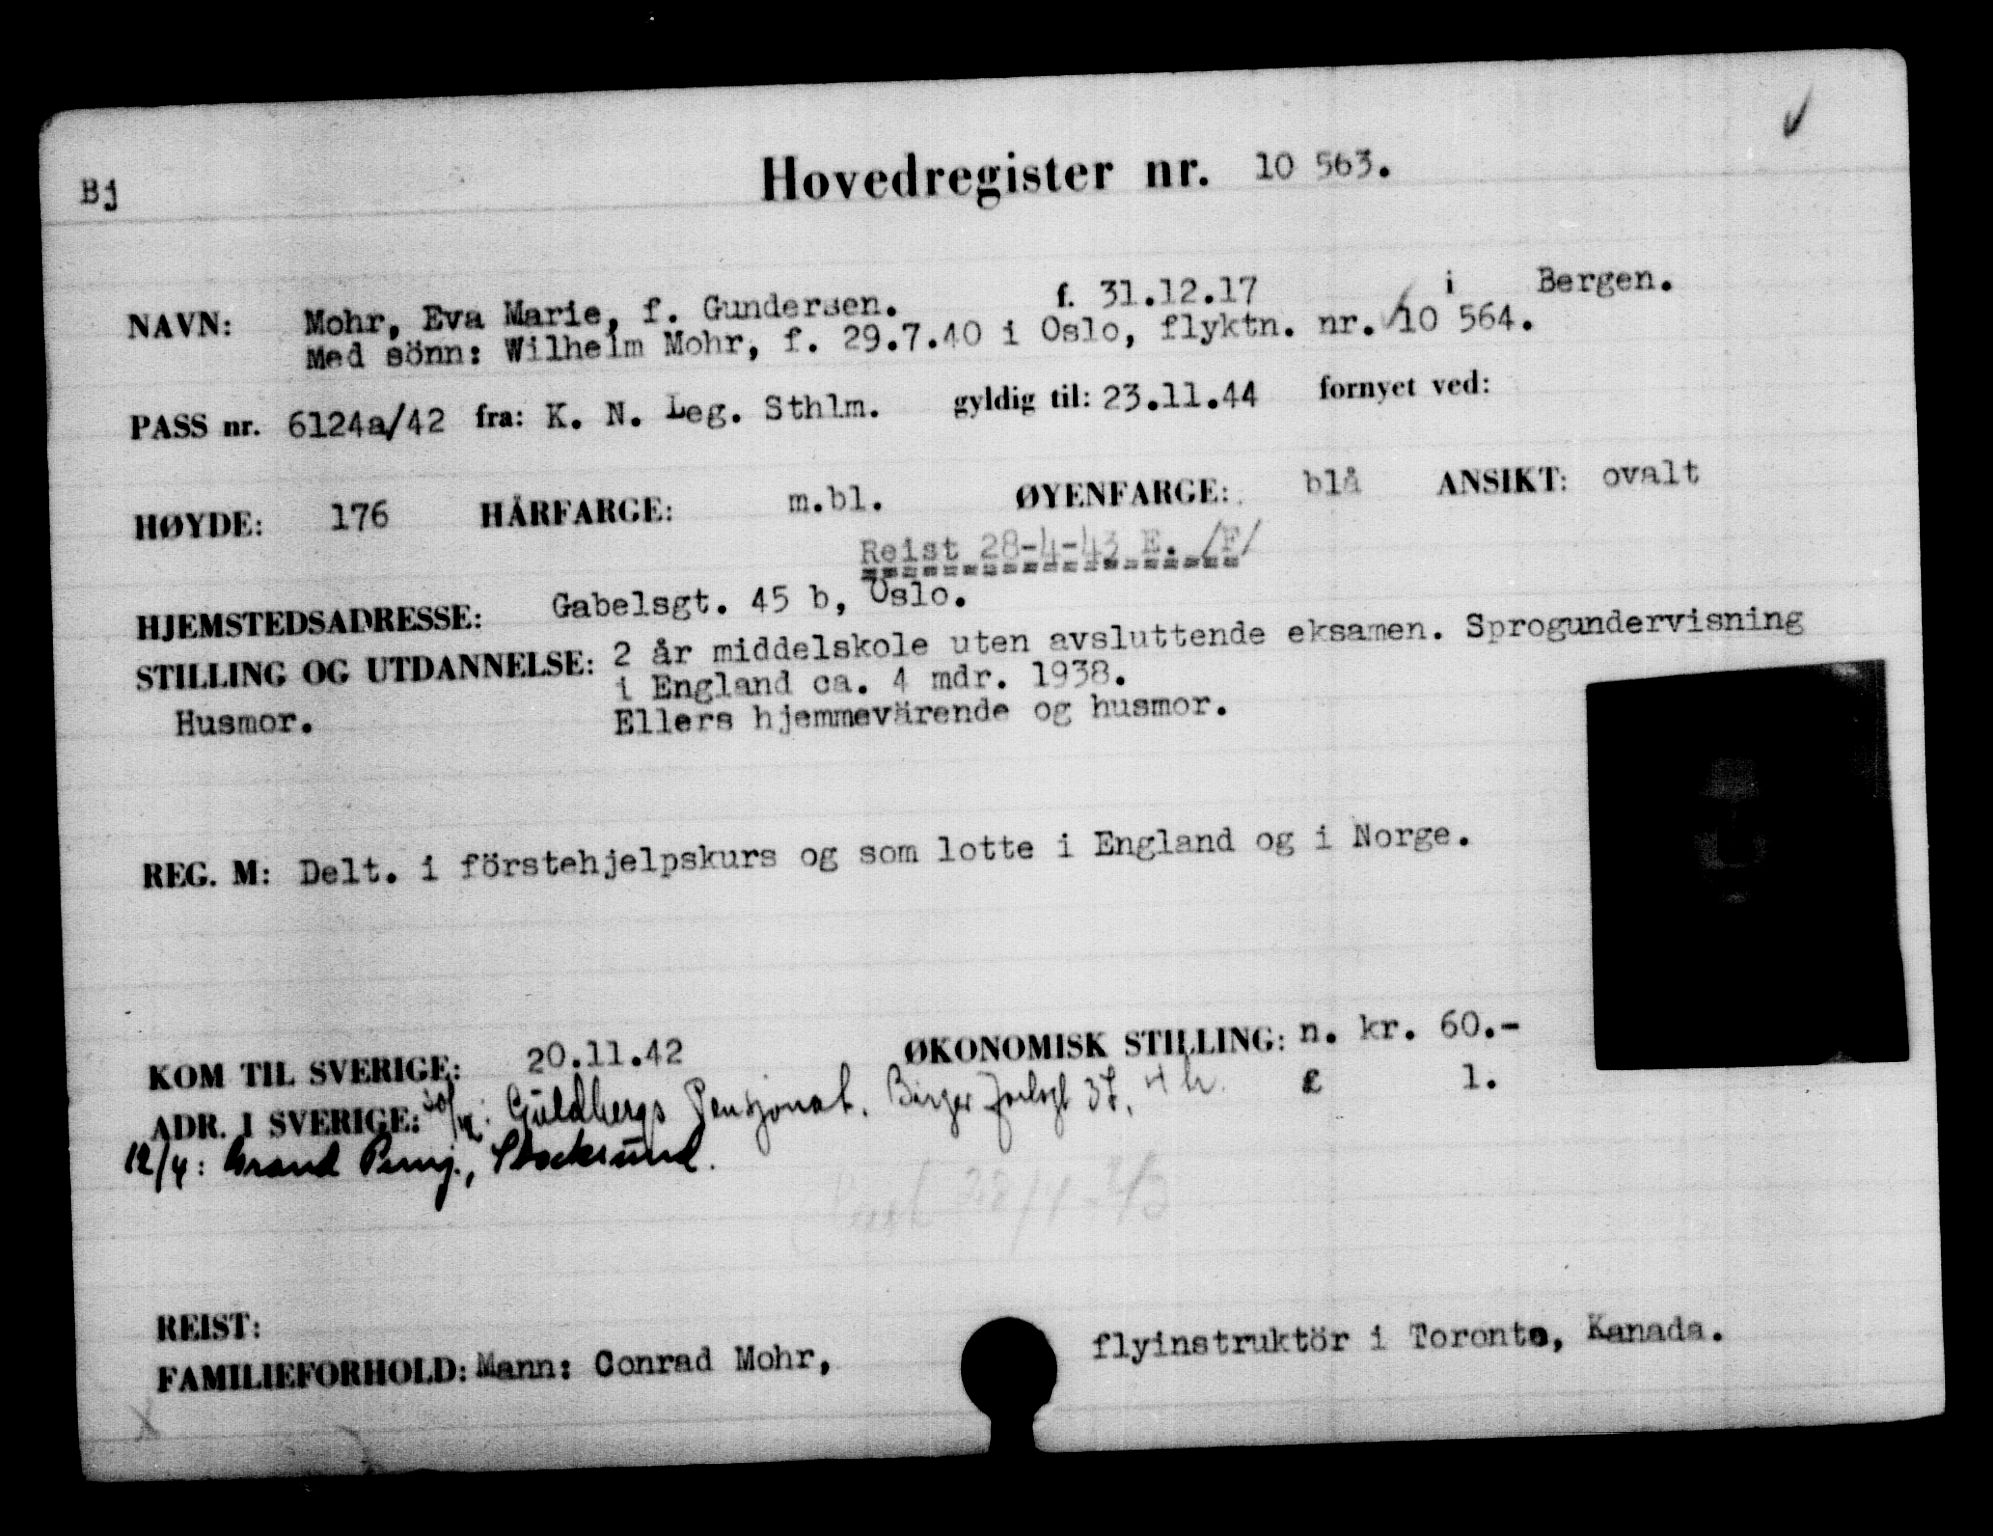 Bj
Hovedregister nr. 10 563.
NAVN: Mohr, Eva Marie, f. Gundersen. f. 31.12.17 i Bergen.
Med sönn: Wilhelm Mohr, f. 29.7.40 i Oslo, flyktn. nr. 10 564.
PASS nr. 6124a/42 fra: K. N. Leg. Sthlm. gyldig til: 23.11.44 fornyet ved:
HØYDE: 176 HÅRFARGE: m.bl. ØYENFARGE: blå ANSIKT: ovalt
Reist 28-4-43 E. /F/
HJEMSTEDSADRESSE: Gabelsgt. 45 b, Oslo.
STILLING OG UTDANNELSE: 2 år middelskole uten avsluttende eksamen. Sprogundervisning
i England ca. 4 mdr. 1938.
Husmor. Ellers hjemmevärende og husmor.
REG. M: Delt. i förstehjelpskurs og som lotte i England og i Norge.
KOM TIL SVERIGE: 20.11.42 ØKONOMISK STILLING: n. kr. 60.-
£ 1.
ADR. I SVERIGE: Guldbergs Pensjonat. Birger Jarlsgt 37, 4 h.
12/4: Grand Pensj., Stocksund.
28/4-43
REIST:
FAMILIEFORHOLD: Mann: Conrad Mohr, flyinstruktör i Toronto, Kanada.